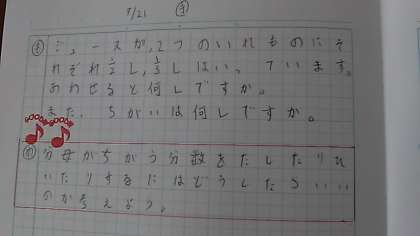 7/21 ㊍
㋲ ジュースが、2つのいれものにそ
れぞれ1/2L、1/3Lはいっています。
あわせると何Lですか。
また、ちがいは何Lですか。
分母がちがう分数をたしたりひ
いたりするにはどうしたらいい
のか考えよう。